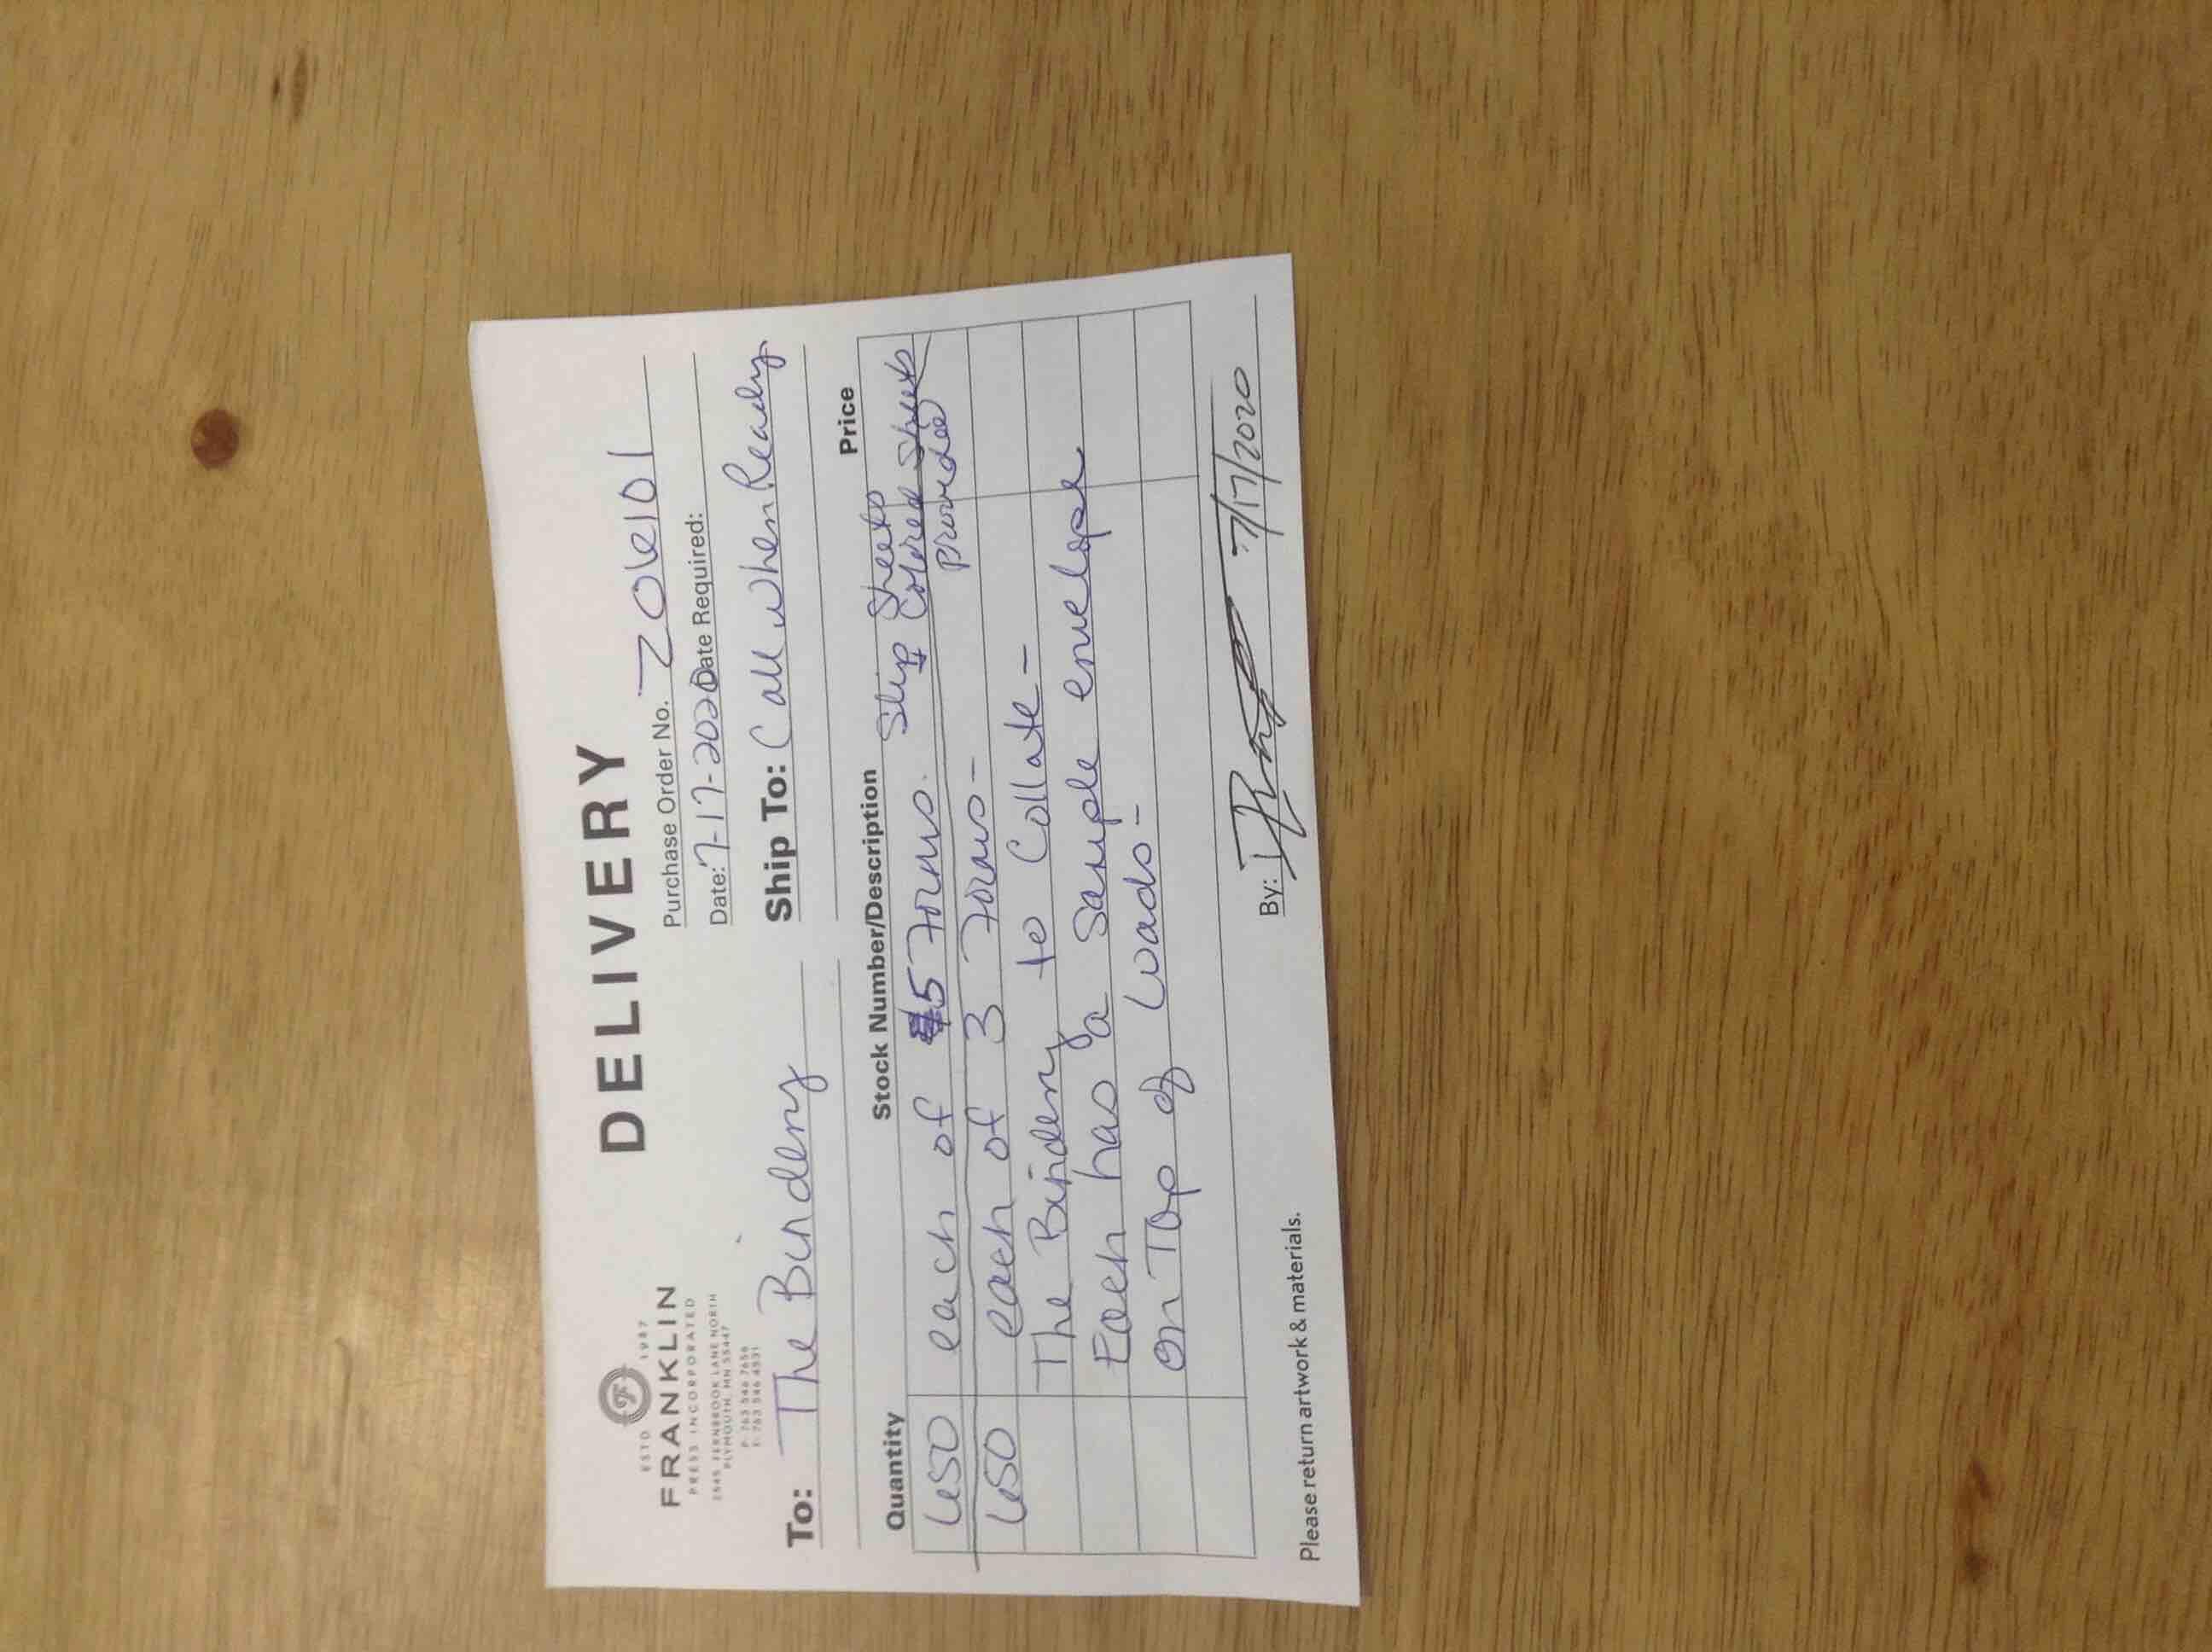 ESTD 1987
FRANKLIN
PRESS INCORPORATED
2545 FERNBROOK LANE NORTH
PLYMOUTH, MN 55447
P: 763 546 7656
F: 763 546 4531
DELIVERY
Purchase Order No. 206101
Date: 7-17-2020 Date Required:
To: The Bindery
Ship To: Call when Ready
Quantity Stock Number/Description Price
Slip Sheets
650 each of 5 Forms. Colored Sheets
provided
650 each of 3 Forms-
The Bindery to Collate-
Each has a Sample envelope
on Top of Loads-
Please return artwork & materials.
By: 7/17/2020